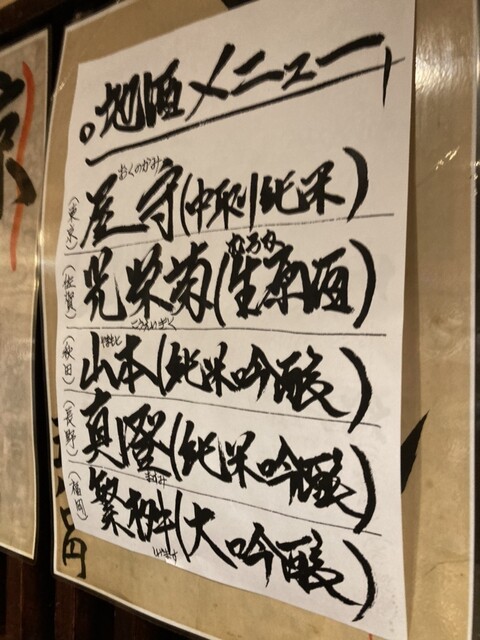 。地酒メニュー
おくのかみ
(東京) 屋守(中取り純米)
むろか
(佐賀) 光栄菊(生原酒)
こうえいぎく
(秋田) 山本(純米吟醸)
やまもと
(長野) 真澄(純米吟醸)
ますみ
(福岡) 繁桝(大吟醸)
しげます
円